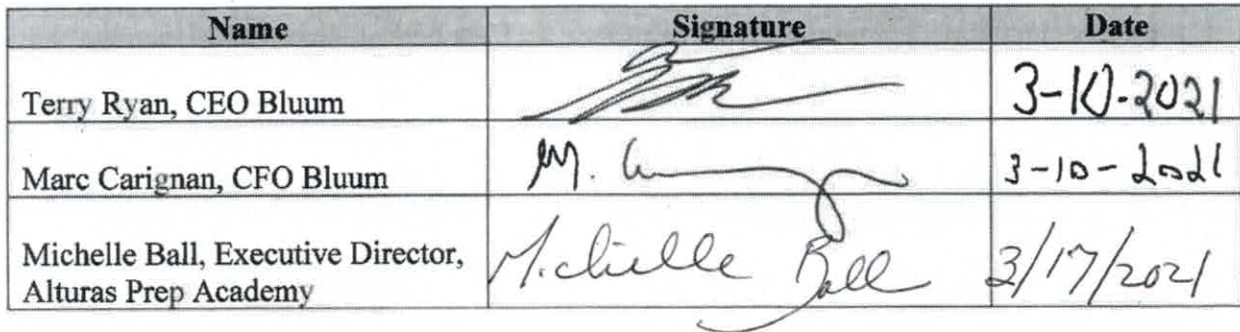 Name Signature Date
Terry Ryan, CEO Bluum 3-10-2021
Marc Carignan, CFO Bluum M. 3-10-2021
Michelle Ball, Executive Director,
Alturas Prep Academy Michelle Ball 3/17/2021